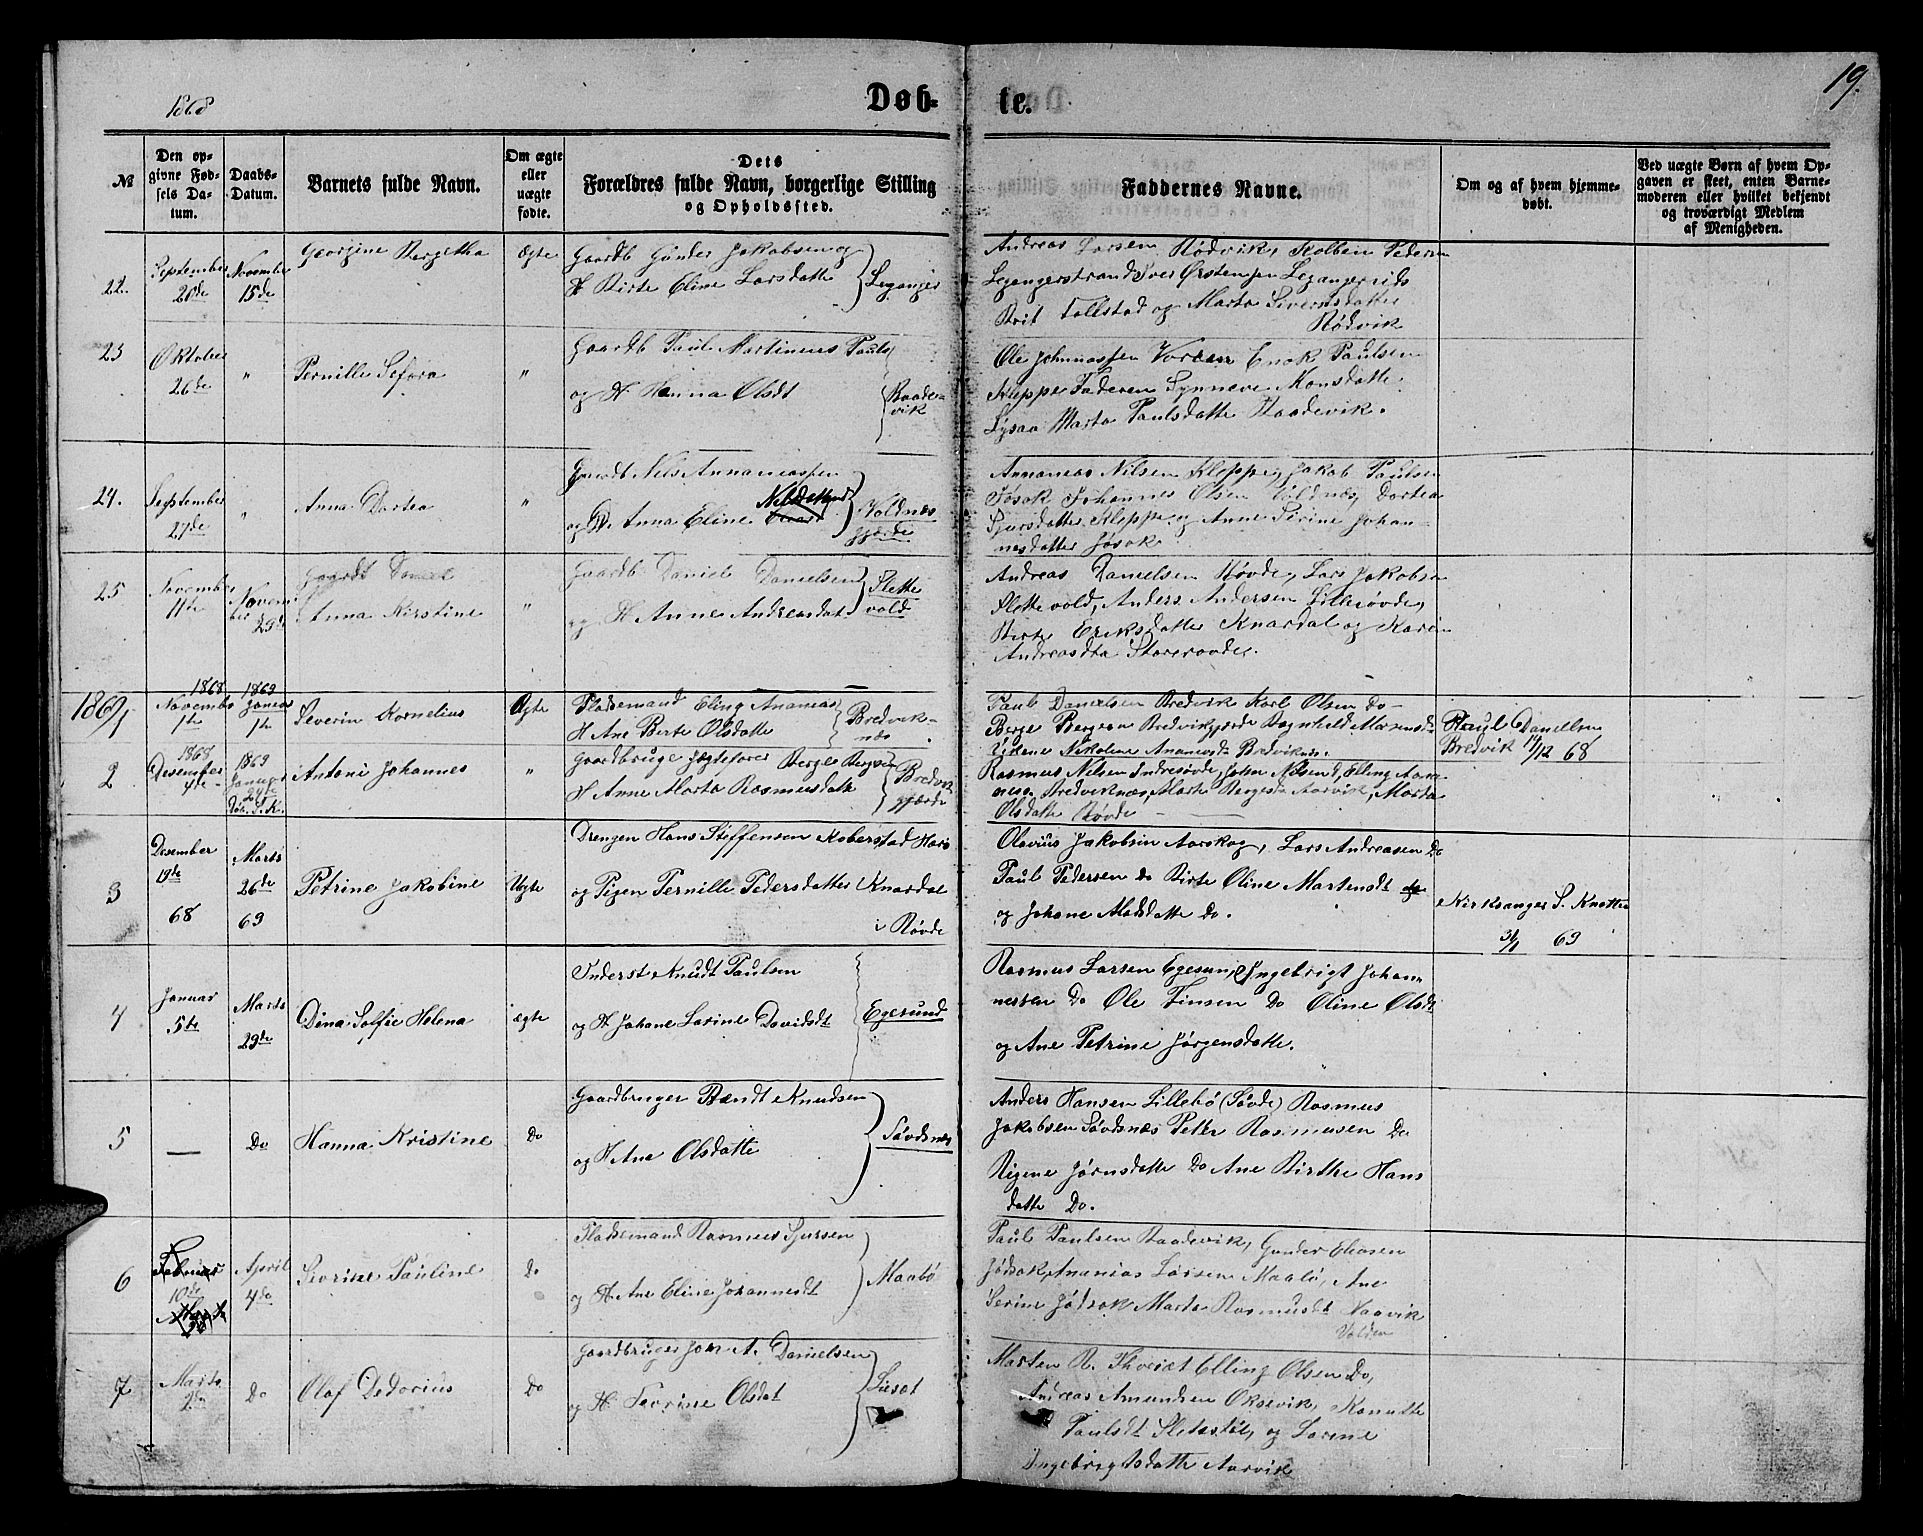 1868
Døb-
te.
19.
№
Den op-
givne Fød-
sels Da-
tum.
Daabs-
Datum.
Barnets fulde Navn.
Om ægte
eller
uægte
fødte.
Dets
Forældres fulde Navn, borgerlige Stilling
og Opholdssted.
Faddernes Navne.
Om og af hvem hjemme-
døbt.
Ved uægte Børn af hvem Op-
gaven er skeet, enten Barne-
moderen eller hvilket bekjendt
og troværdigt Medlem
af Menigheden.
22.
September
20de
November
15de
Georgine Bergitha
Ægte
Gaardb Gunder Jakobsen og
H Birte Eline Larsdatte
Leganger
Andreas Larsen Rødvik, Kolbein Pedersen
Legangerstrand Iver Leganger
Brit Follstad og Marta Siversdatter
Rødvik
23
Oktober
26de
"
Pernille Sefora
"
Gaardb Paul Martinius Pauls
og H. Hanna Olsdt
Raade-
vik
Ole Johnnassen Enok Paulsen
Kleppe Faderen Synneve Monsdatte
Lysaa Marta Paulsdatte Raadevik.
24.
September
27de
"
Anna Dortea
"
Gaardb Nils Annaniassen
og H. Anna Eline
Voldnæs
gjærde
Annanias Nilsen Kleppe, Jakob Paulsen
Jøsok Johannes Olsen Voldnæs, Dortea
Sjursdatter Kleppe og Anne Sirine Johan-
nesdatter Jøsok
25
November
11te
Novem
ber
29de
Gaardb Daniel
Anna Kirstine
"
Gaardb Daniel Danielsen
og H Anne Andreasdat
Slette
vold
Andreas Danielsen Røvde, Lars Jakobsen
Slettevold, Anders Andersen Lillerøvde,
Birte Eriksdatter Knardal og Karen
Andreasdta Storerøvde.
1869
1
1868
Novembr
1te
1869
Januar
1te
Severin Kornelius
Ægte
Pladsemand Eling Ananias
H Ane Berte Olsdatte
Bredvik-
næs
Paul Danielsen Bredvik Karl Olsen Do
Berge Bergsen Bredvikgjærde Ragnhild
Nikoline Ananiasd Bredviknæs.
Paul Daniellsen
Bredvik 14/12 68
2
1868
Desember
4de
1869
Januar
24de
Døb. S. K.
Antoni Johannes
"
Gaardbruge Jægtefører Berge Bergsen
H Anne Marta Rasmusdatte
Bredvik
gjærde
Rasmus Nilsen Indrerøvde, John Nilsen d, Elling Anan
Bredviknæs, Marte Bergesd Aarvik, Marta
Olsdatte Røvde
3
Desember
19de
68
Marts
26de
69
Petrine Jakobine
Uægte
Drengen Hans Steffensen Koberstad
og Pigen Pernille Pedersdatter Knardal
i Røvde
Olavius Jakobsen Aarskog, Lars Andreasen Do
Paul Pedersen do Birte Oline Martensdt
og Johane Madsdatte Do.
Kirksanger S. Knotten
31/1 69
4
Januar
5te
Marts
29de
Dina Solfie Helena
ægte
Inderst Knudt Paulsen
og H Johane Larine Davidsdt
Egesund
Rasmus Larsen Egesund, Ingebrigt Johan-
nessen Do Ole Finsen Do Oline Olsdt
og Ane Petrine Jørgensdatte.
5
—
Do
Hanna Kristine
Do
Gaardbruger Bendt Knudsen
og H Ane Olsdatte
Søvdsnæs
Anders Hansen Lillebø (Søvde) Rasmus
Jakobsen Søvdsnæs Petter Rasmusen Do
Rigene Jørnsdatte Do Ane Birthe Hans
datte Do.
6
Februar
10de
April
4de
Sivrine Pauline
Do
Pladsemand Rasmus Sjursen
og H Ane Eline Johannesdt
Maabø
Paul Paulsen Raadevik, Gunder Eliasen
Jøsok, Ananias Larsen Maabø, Ane
Serine Jødsok Marta Rasmusdt Naavik
Volden
7
Marts
2den
Do
Olaf Dedorius
Do
Gaardbruger Jon A. Danielsen
og H. Severine Olsdat
Liesæt
Marten R. Thveit Elling Olsen Do,
Andreas Amundsen Oksevik, Kanutte
Paulsdt Sletestøl, og Larine
Ingebrigtsdatte Aarvik